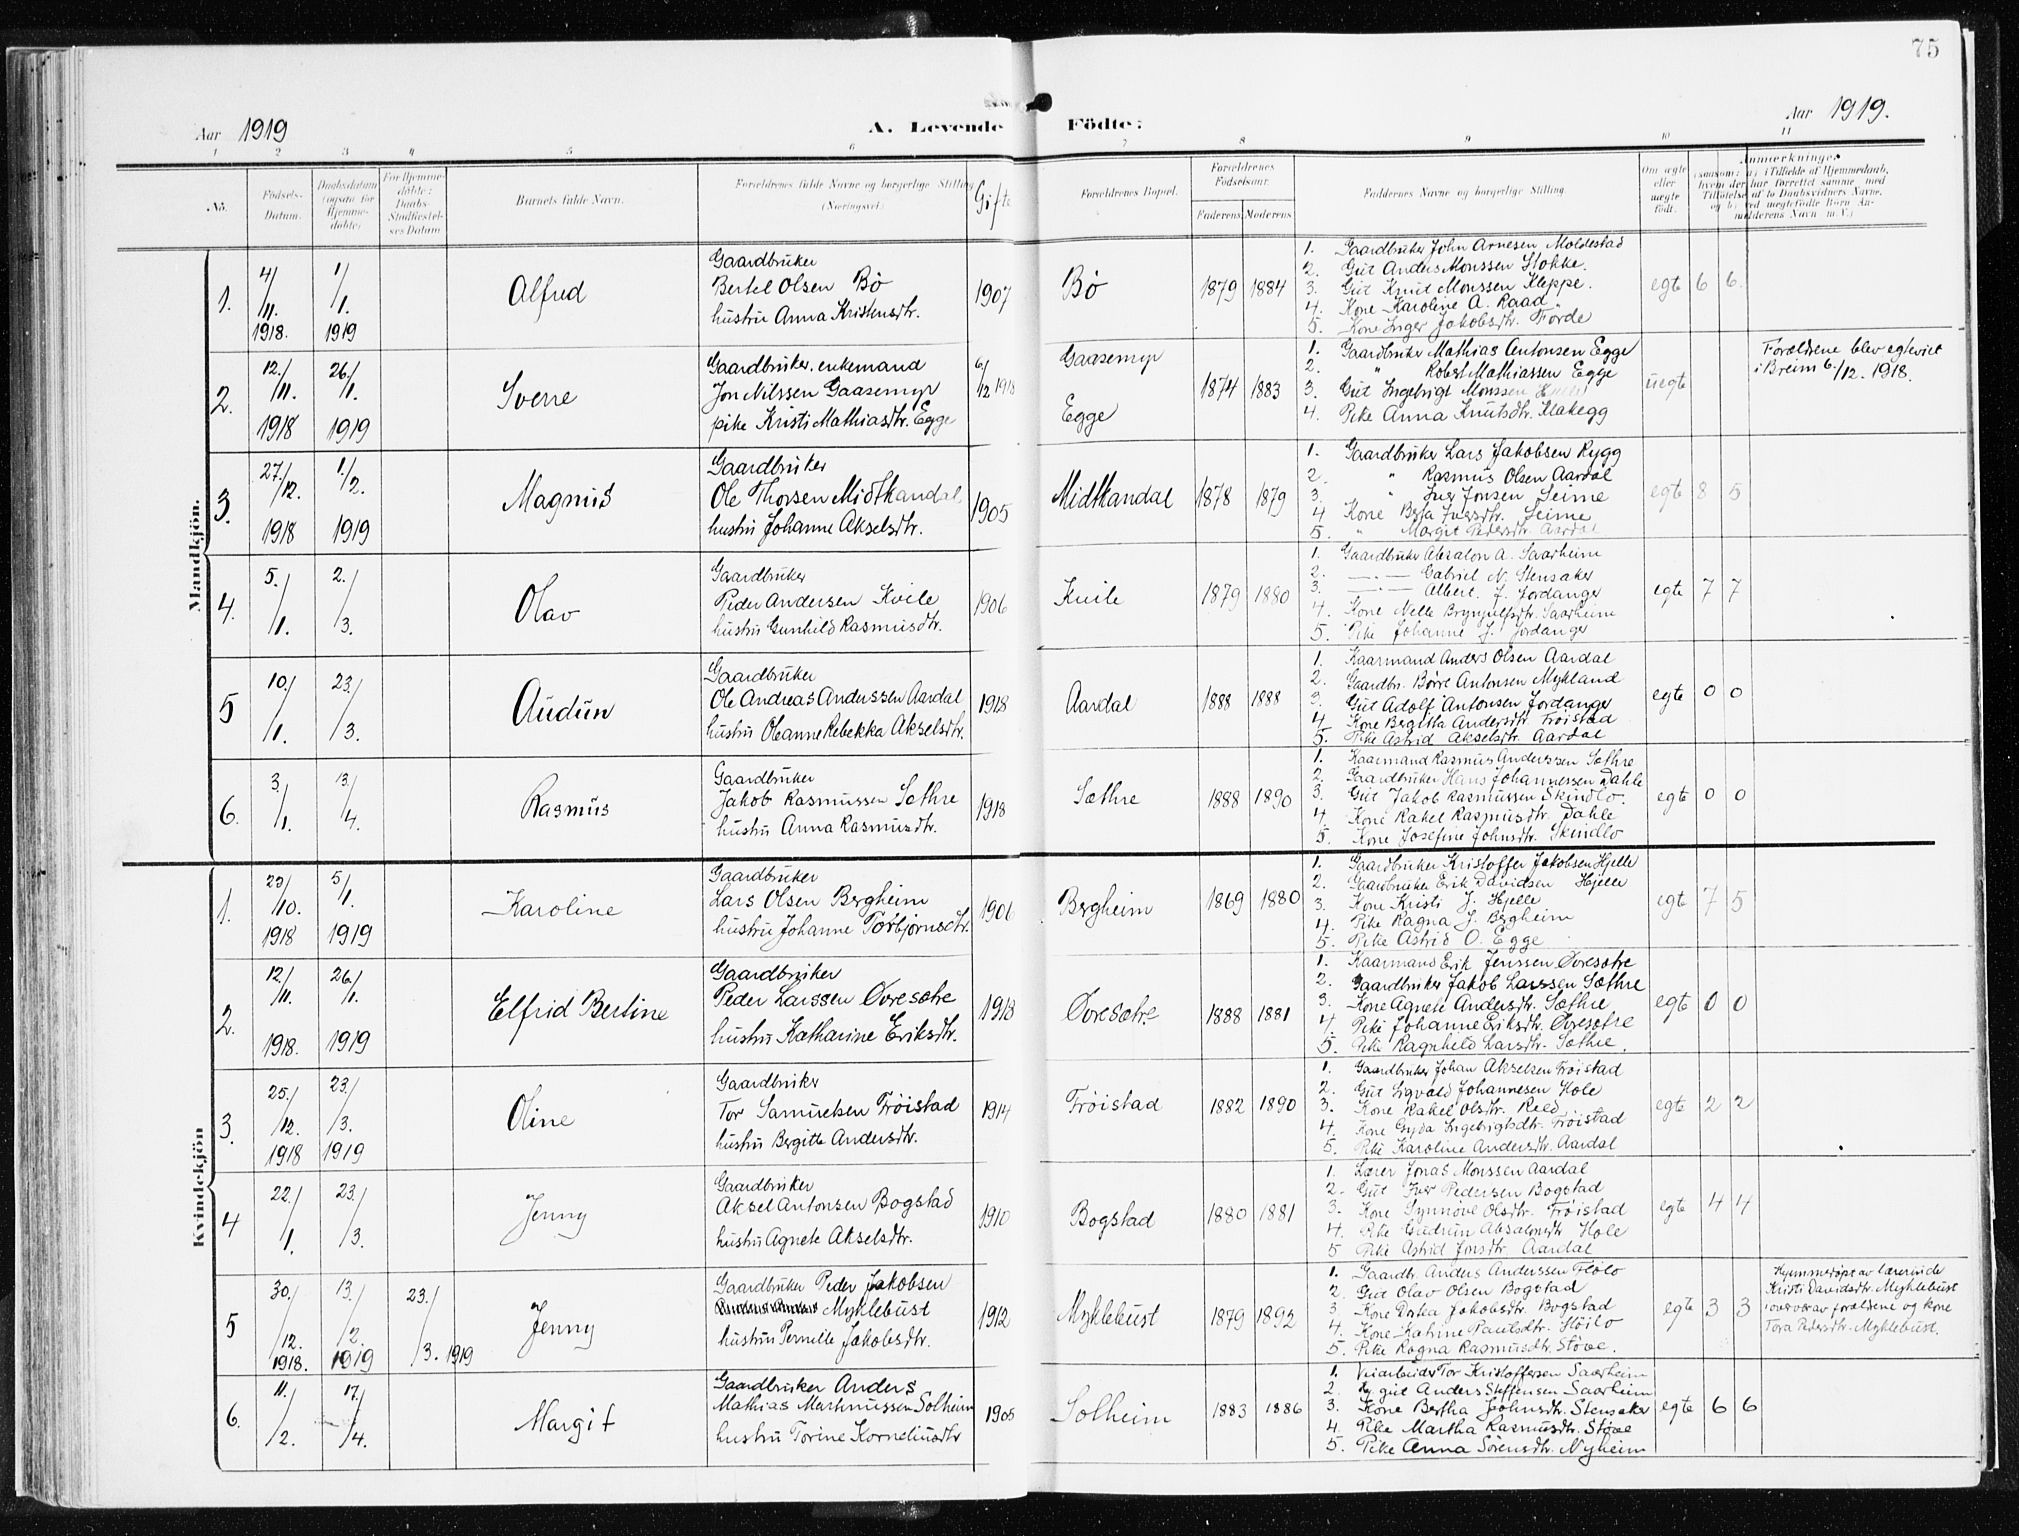 75
Aar 1919
A. Levende Födte:
Aar 1919.
1 2 3 4 5 6 7 8 9 10 11
No.
Födsels-Datum.
Daabsdatum (ogsaa for Hjemme-döbte)
For Hjemme-döbte: Daabs-Stadfæstel-ses Datum
Barnets fulde Navn.
Forældrenes fulde Navne og borgerlige Stilling (Næringsvei.)
Gifte
Forældrenes Bopæl.
Forældrenes Födselsaar.
Faderens Moderens
Faddernes Navne og borgerlige Stilling.
Om ægte eller uægte född.
Anmærkninger
Mandkjön.
1. 4/11. 1918. 1/1. 1919 Alfred
Gaardbruker
Bertel Olsen Bø
hustru Anna Kristensdtr.
1907 Bø 1879 1884
1. Gaardbruker John Arnesen Moldestad
2. Gut Anders Monssen Stokke.
3. Gut Knut Monssen Kleppe.
4. Kone Karoline A. Raad
5. Kone Inger Jakobsdtr. Førde
egte 6 6
2. 12./11. 1918 26./1. 1919 Sverre
Gaardbruker, enkemand
Jon Nilssen Gaasemyr
pike Kristi Mathiasdtr. Egge
6/12 1918
Gaasemyr
Egge
1874 1883
1. Gaardbruker Mathias Antonsen Egge
2. " Robert Mathiassen Egge
3. Gut Ingebrigt Monssen
4. Pike Anna Knutsdtr. Klakegg
uegte
Forældrene blev egteviet
i Breim 6/12. 1918.
3. 27./12. 1918 1./2. 1919 Magnus
Gaardbruker
Ole Thorsen Midtkandal
hustru Johanne Akselsdtr.
1905 Midtkandal 1878 1879
1. Gaardbruker Lars Jakobsen Rygg
2. " Rasmus Olsen Aardal
3. " Iver Jonsen Seime
4 Kone Berta Iversdtr. Seime
5. " Margit Pedersdtr. Aardal
egte 8 5
4. 5./1. 2./3. Olav
Gaardbruker
Peder Andersen Kvile
hustru Gunhild Rasmusdtr.
1906 Kvile 1879 1880
1. Gaardbruker Absalon A. Saarheim
2. —·— Gabriel N. Stensaker
3. —·— Albert J. Jordanger
4. Kone Nelle Brynjulfsdtr. Saarheim
5. Pike Johanne J. Jordanger
egte 7 7
5 10./1. 23./3. Audun
Gaardbruker
Ole Andreas Anderssen Aardal
hustru Oleanne Rebekka Akselsdtr.
1918 Aardal 1888 1888
1. Kaarmand Anders Olsen Aardal
2. Gaardbr. Børre Antonsen Mykland
3. Gut Adolf Antonsen Jordanger
4. Kone Bergitta Andersdtr. Frøistad
5. Pike Astrid Akselsdtr. Aardal
egte 0 0
6. 3/1. 13./4. Rasmus
Gaardbruker
Jakob Rasmussen Sæthre
hustru Anna Rasmusdtr.
1918 Sæthre 1888 1890
1. Kaarmand Rasmus Anderssen Sæthre
2. Gaardbruker Hans Johannessen Dahle
3. Gut Jakob Rasmussen Skindlo.
4. Kone Rakel Rasmusdtr. Dahle
5. Kone Josefine Johnsdtr. Skindlo
egte 0 0
Kvindekjön
1. /10. 1918 5/1. 1919 Karoline
Gaardbruker
Lars Olsen Bergheim
hustru Johanne Torbjørnsdtr.
1906 Bergheim 1869 1880
1. Gaardbruker Kristoffer Jakobsen Hjelle
2. Gaardbruker Erik Davidsen Hjelle
3. Kone Kristi J. Hjelle
4. Pike Ragna J. Bergheim
5. Pike Astrid O. Egge
egte 7 5
2. 12./11. 1918. 26./1. 1919 Elfrid Bertine
Gaardbruker
Peder Larssen Øvresætre
hustru Katharine Eriksdtr.
1913 Øvresætre 1888 1881
1. Kaarmand Erik Jenssen Øvresætre
2. Gaardbruker Jakob Larssen Sæthre
3. Kone Agnete Andersdtr. Sæthre
4. Pike Johanne Eriksdtr. Øvresætre
5. Pike Ragnhild Larsdtr. Sæthre.
egte 0 0
3. 25./12. 1918 23./3. 1919 Oline
Gaardbruker
Tor Samuelsen Frøistad
hustru Bergitte Andersdtr.
1914 Frøistad 1882 1890
1. Gaardbruker Johan Akselsen Frøistad
2. Gut Sigvald Johannesen Hole
3. Kone Rakel Olsdtr. Reed
4. Kone Gyda Ingebrigtsdtr. Frøistad
5. Pike Karoline Andersdtr. Aardal
egte 2 2
4 22./1. 23./3. Jenny
Gaardbruker
Aksel Antonsen Bogstad
hustru Agnete Akselsdtr.
1910 Bogstad 1880 1881
1. Lærer Jonas Monssen Aardal
2. Gut Iver Pedersen Bogstad
3. Kone Synnøve Olsdtr. Frøistad
4. Pike Gudrun Absalonsdtr Hole
5 Pike Astrid Jonsdtr. Aardal
egte 4 4
5 30./12. 1918. 13./2. 1919 23./3. 1919 Jenny
Gaardbruker Peder Jakobsen
Myklebust
hustru Pernille Jakobsdtr.
1912 Myklebust 1879 1892
1. Gaardbr. Anders Anderssen Fløto
2. Gut Olav Olsen Bogstad
3. Kone Jakobsdtr. Bogstad
4. Kone Katrine Paulsdtr.
5. Pike Ragna Rasmusdtr. Støve.
egte 3 3
Hjemmedøpt av lærerinde
Kristi Davidsdtr. Myklebust
i overvær av forældrene og kone
Tora Pedersdtr. Myklebust.
6. 11./2. 17./4. Margit
Gaardbruker Anders
Mathias Martinussen Solheim
hustru Torine Korneliusdtr
1905 Solheim 1883 1886
1. Veiarbeider Tor Kristoffersen Saarheim
2. gut Anders Steffensen Saarheim
3. Kone Bertha Johnsdtr. Stensaker
4. Pike Martha Rasmusdtr. Støve
5. Pike Anna Sørensdtr. Nyheim
egte 6 6